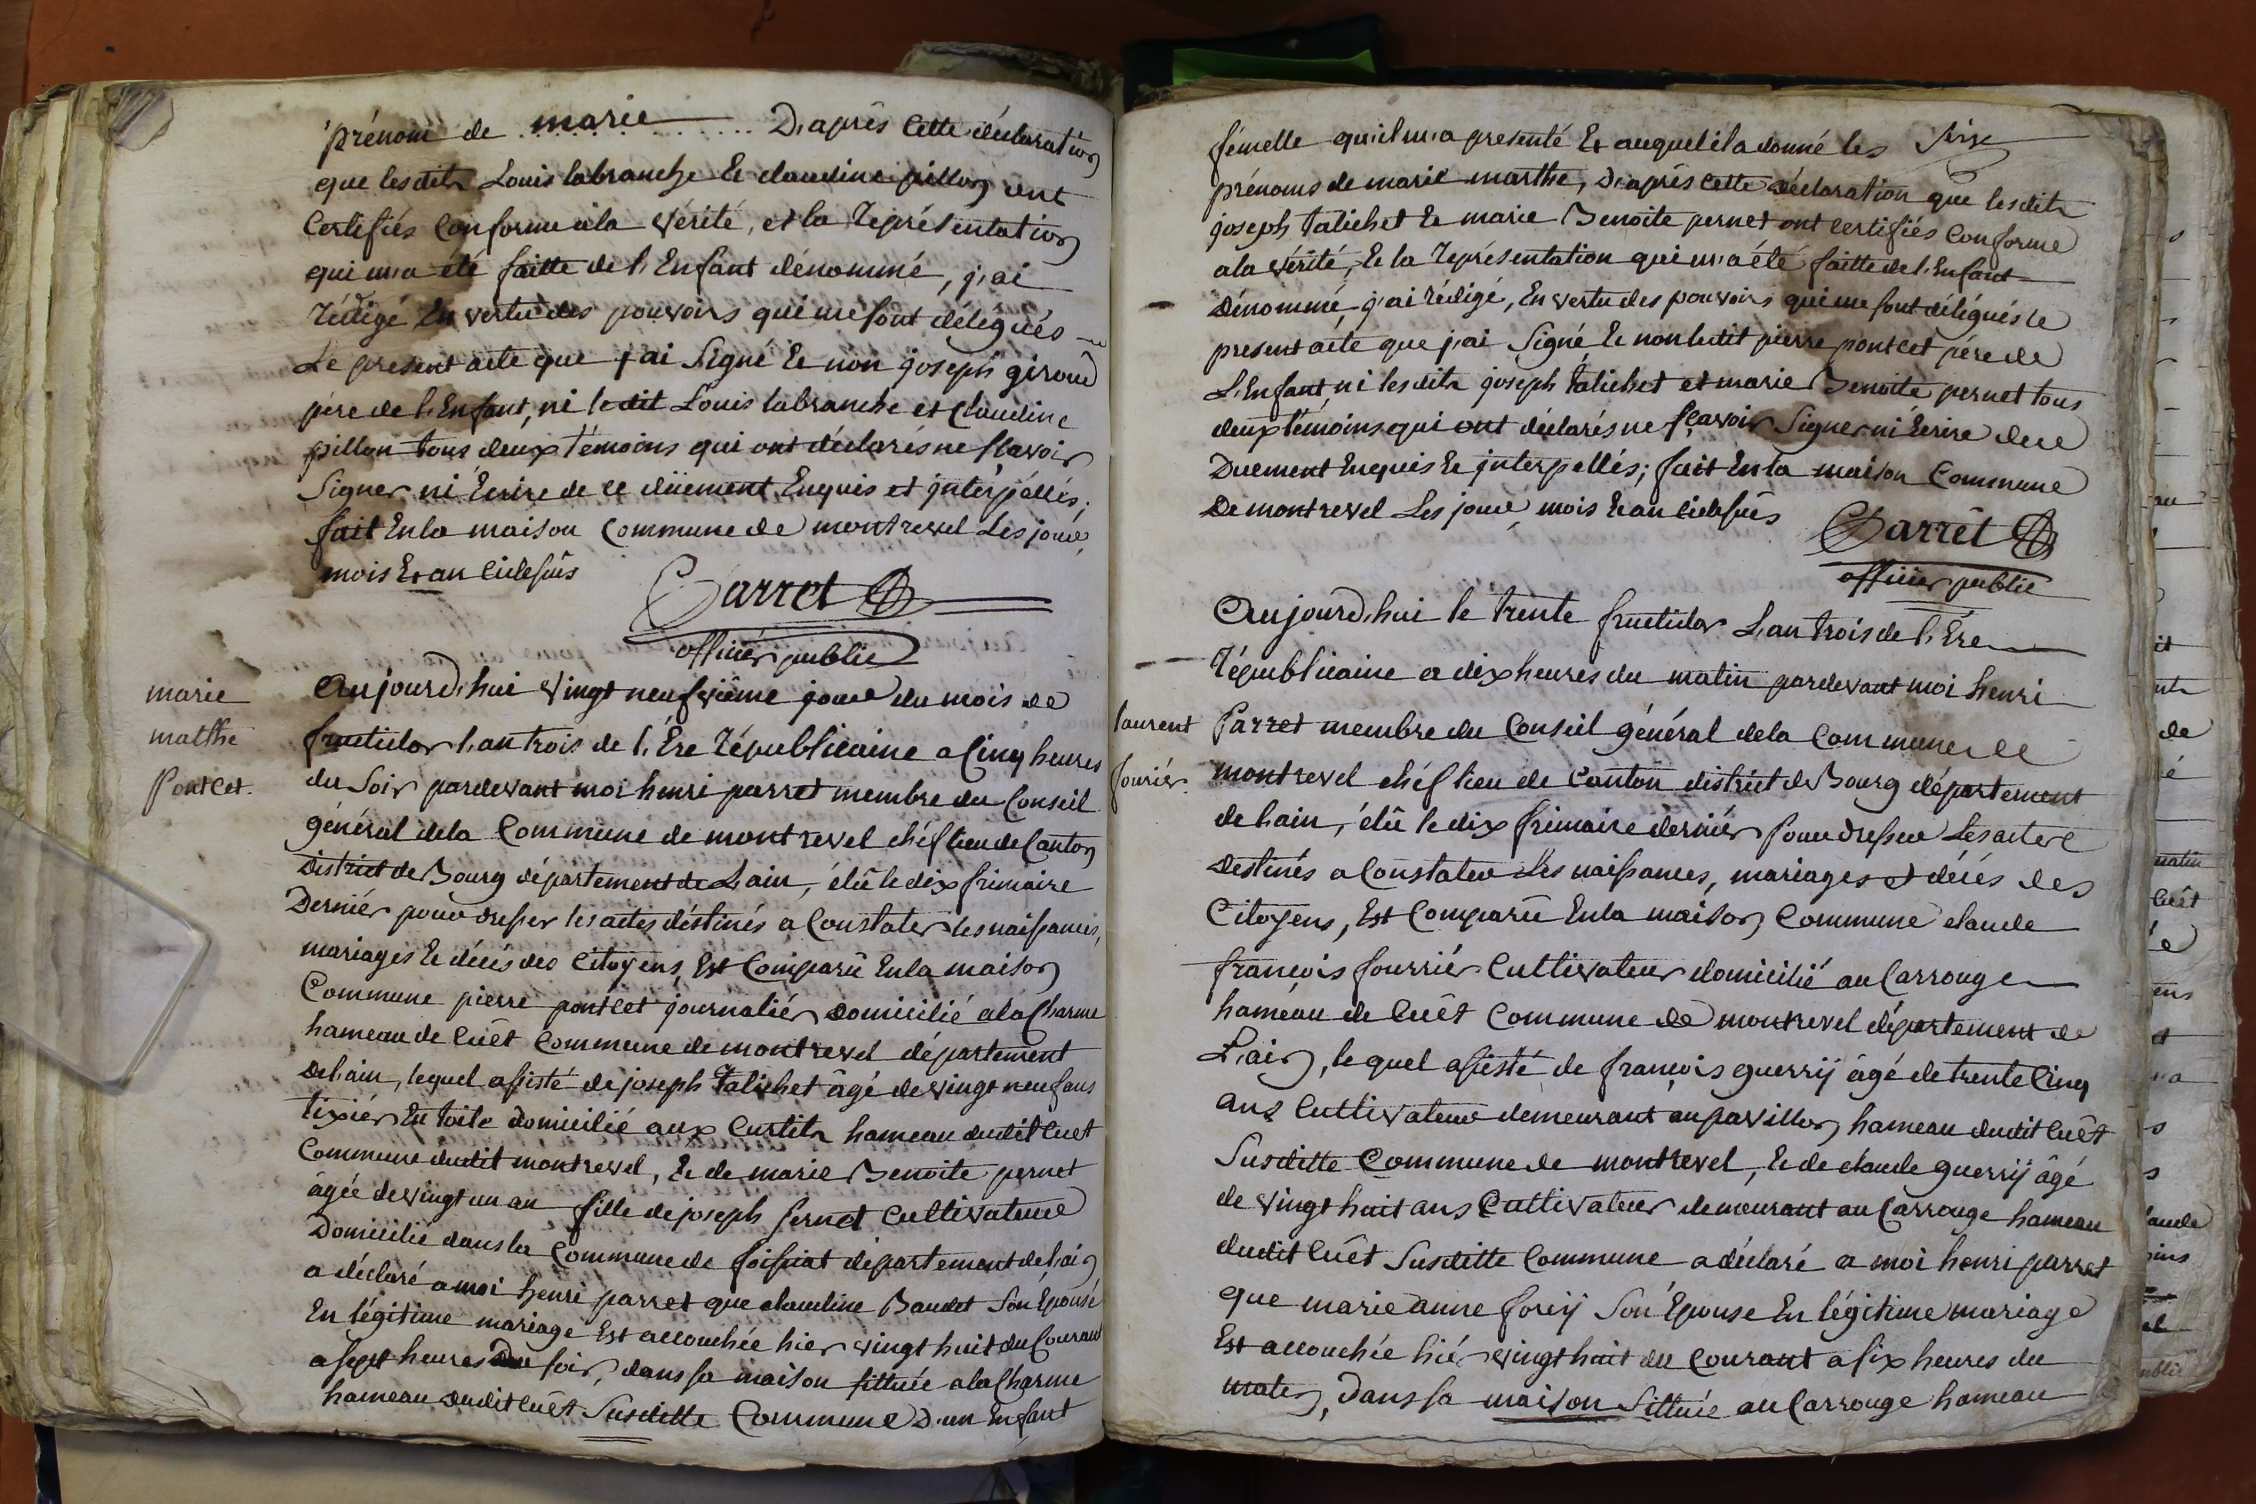 prénom de marie D,aprés Cette déclaration
que lesdits Louis labranche Et claudine pillon ont
Certifiés Conforme a la vérité, et la représentation
qui m,a été faitte de l,Enfant dénommé, j,ai
rédigé En vertu des pouvoirs qui me sont délégués
Le present acte que j,ai Signé Et non joseph giroud
pére de l,Enfant, ni ledit Louis labranche et Claudine
pillon tous deux témoins qui ont déclarés ne sçavoir
Signer ni Ecrire de ce düement Enquis et jnterpéllés;
fait En la maison Commune de montrevel Les jour,
mois Et an cidessûs
Parret
officiér public
marie
marthe
Pontcet.
Aujourd,hui vingt neufviéme jour du mois de
fructidor l,an trois de l,Ére républicaine a Cinq heures
du Soir pardevant moi henri parret membre du Conseil
général dela Commune de montrevel chéf lieu de Canton
District de Bourg département de L,ain, élû le dix frimaire
Derniér pour dresser les actes déstinés a Constater les naissances,
mariages Et décés des Citoyens, Est Comparû En la maison
Commune pierre pontcet journaliér domicilié a la Charme
hameau de Cuêt Commune de montrevel département
De l,ain, lequel assisté de joseph Talichet âgé de vingt neuf ans
tixiér En toile domicilié aux Curtits hameau dudit Cuêt
Commune dudit montrevel, Et de marie Benoite pernet
âgée de vingt un an fille de joseph pernet Cultivateur
Domicilié dans la Commune de foissiat département de l,ain
a déclaré a moi henri parret que claudine Baudet Son Épouse
En légitime mariage Est accouchée hier vingt huit du Courant
a sept heures Du soir, dans sa maison sittuée a la Charme
hameau dudit Cuêt Susditte Commune D,un Enfant
fémelle qu,il m,a presenté Et auquel il a donné les
prénoms de marie marthe, D,aprés cette déclaration que lesdits
joseph talichet Et marie Benoite pernet ont certifiés Conforme
a la vérité, Et la représentation qui m,a été faitte de l,Enfant
Dénommé j,ai rédigé, En vertu des pouvoirs qui me sont délégués le
present acte que j,ai Signé Et non ledit pierre pontcet pére de
L,Enfant, ni lesdits joseph talichet et marie Benoite pernet tous
deux témoins qui ont déclarés ne sçavoir Signer ni Ecrire de ce
Duement Enquis Et jnterpellés; fait En la maison Commune
De montrevel Les jour, mois Et an cidessûs
Parrét
officiér public
laurent
fouriér.
Aujourd,hui le trente fructidor L,an trois de l,Ére
républicaine a dix heures du matin pardevant moi henri
Parret membre du Conseil général dela Commune de
montrevel chéf lieu de Canton district de Bourg département
de l,ain, élû le dix frimaire derniér pour dresser Les actes
destinés a Constater Les naissances, mariages et décés des
Citoyens, Est Comparû En la maison Commune claude
françois fourriér Cultivateur domicilié au Carrouge
hameau de Cuêt Commune de montrevel département de
L,ain, lequel assisté de françois guerrÿ âgé de trente Cinq
ans Cultivateur demeurant au pavillon hameau dudit Cuêt
Susditte Commune de montrevel, Et de claude guerrÿ âgé
de vingt huit ans Cultivateur demeurant au Carrouge hameau
dudit Cuêt Susditte Commune a déclaré a moi henri parret
que marie anne forëÿ Son Épouse En légitime mariage
Est accouchée hiér vingt huit du Courant a six heures du
matin, Dans sa maison Sittuée au Carrouge hameau